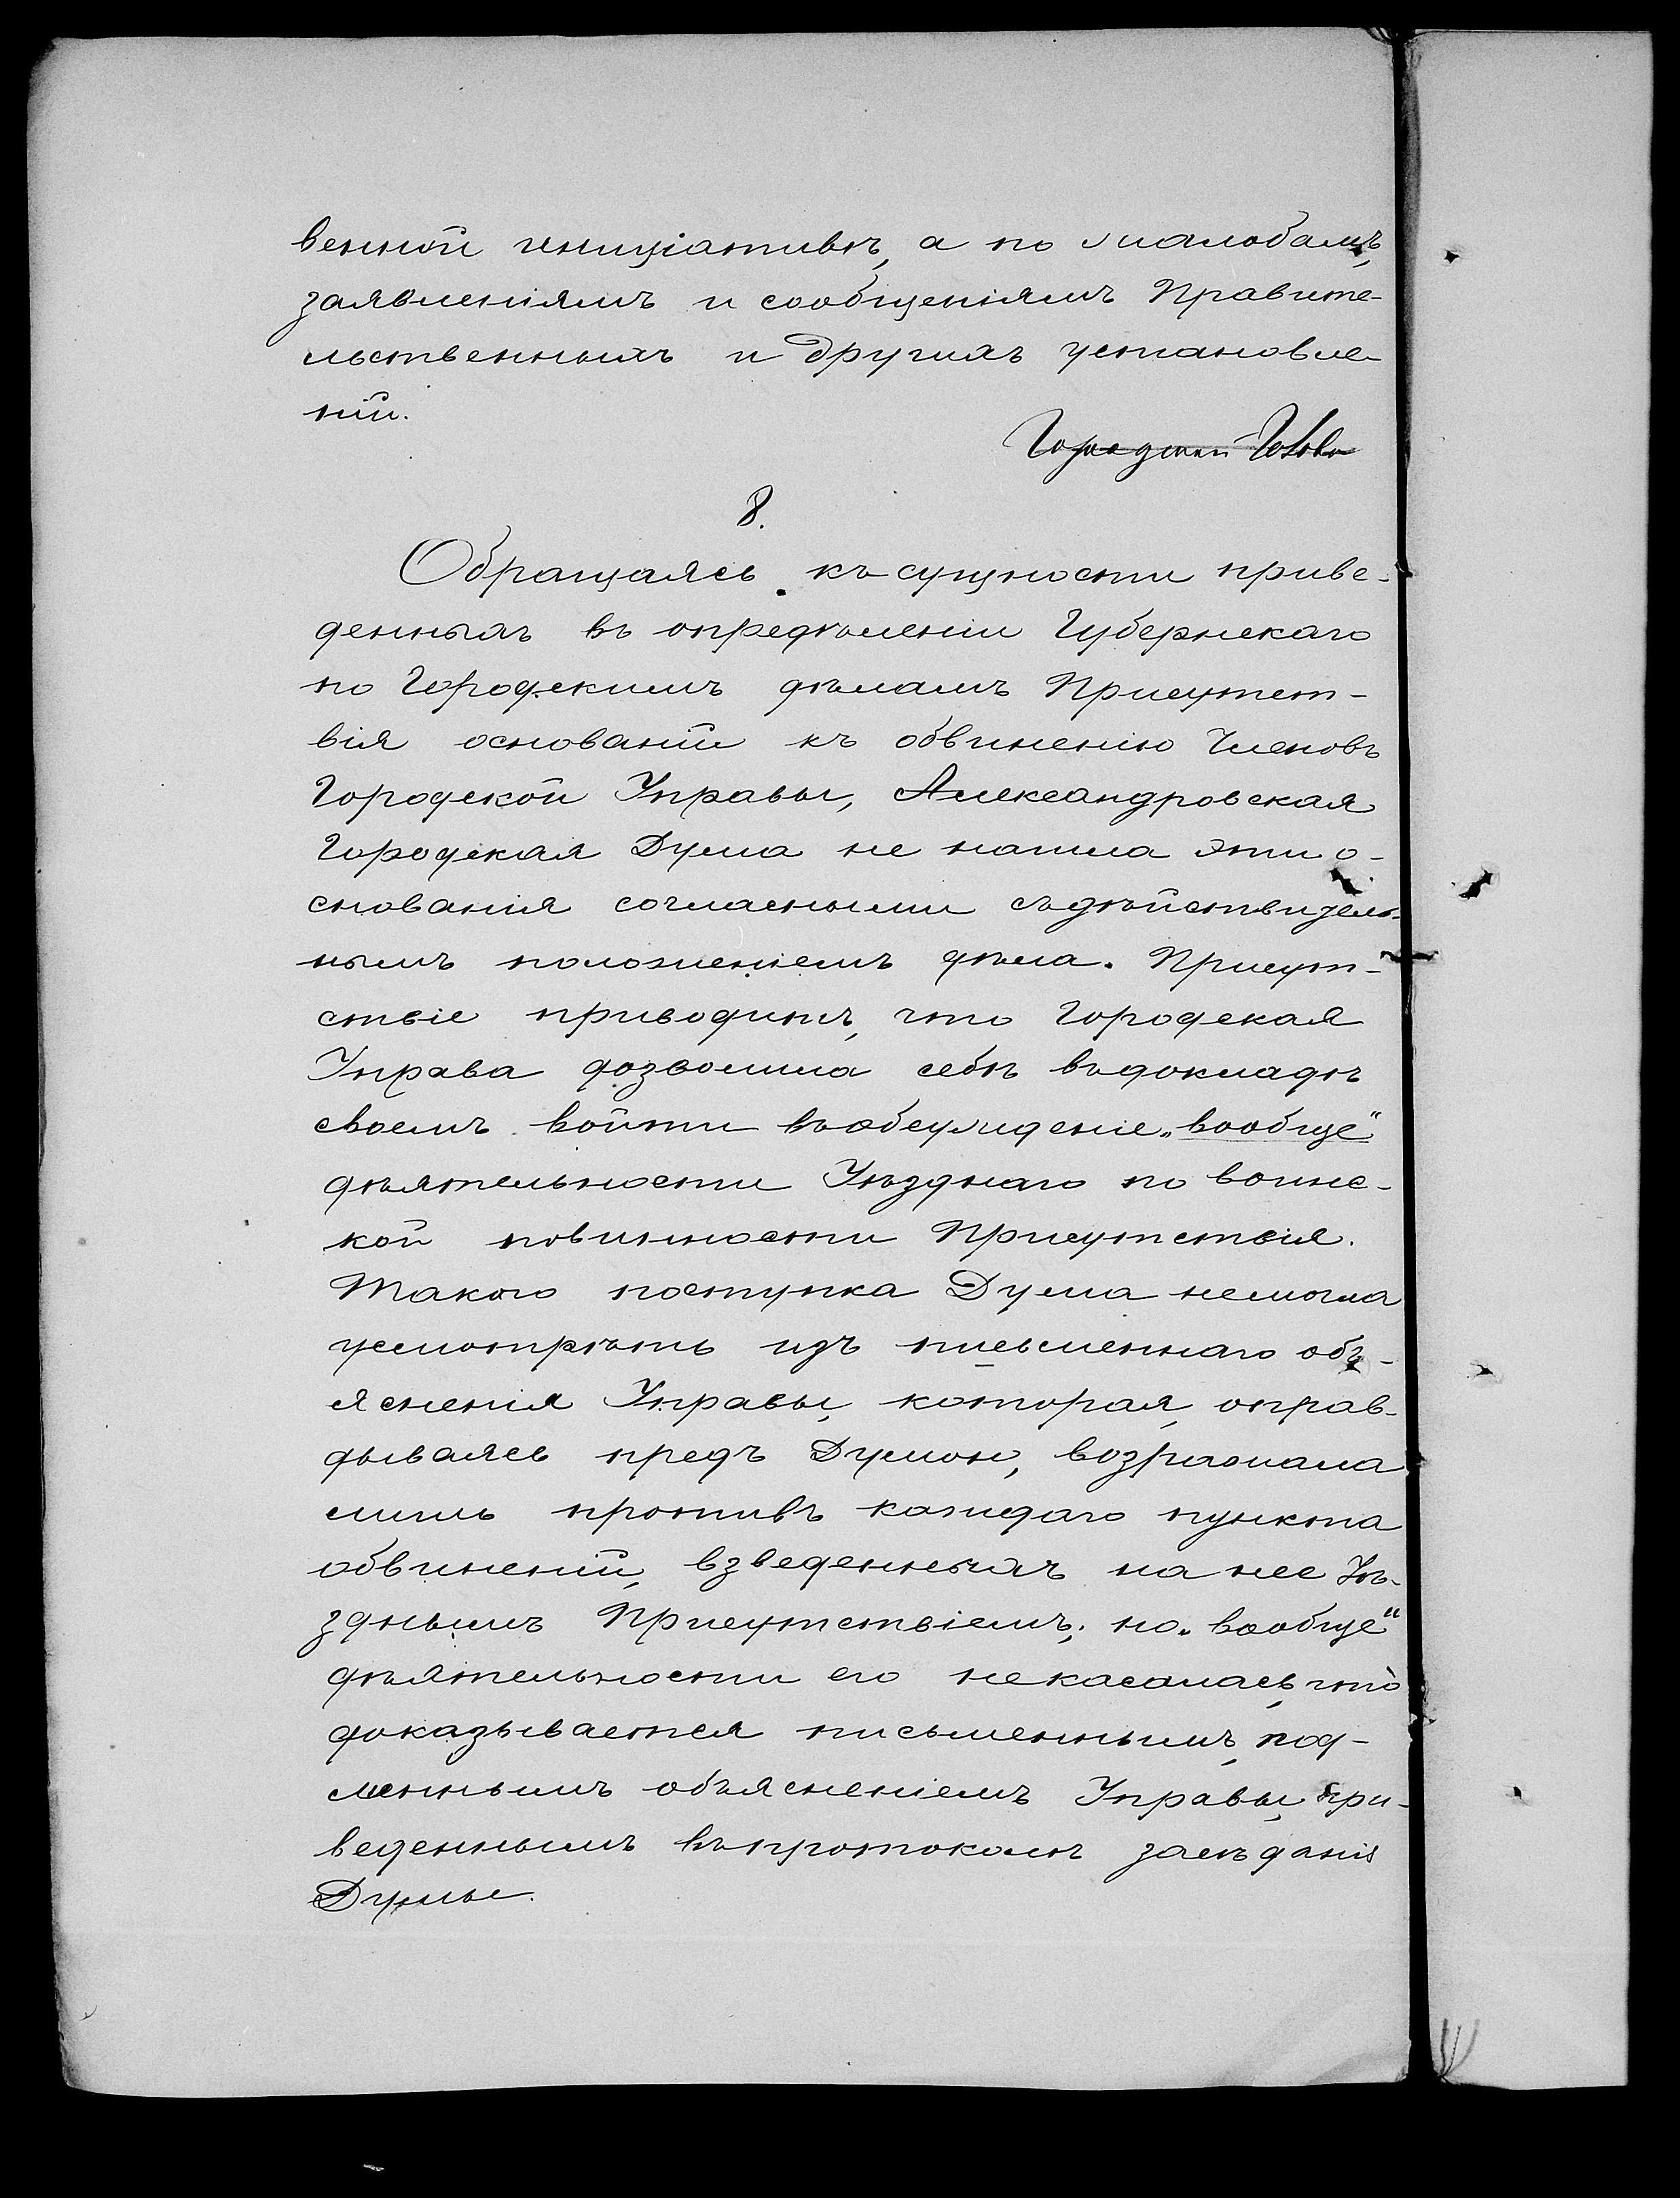 венной иниціативѣ, а по жалобамъ,
заявленіямъ и сообщеніямъ Правите-
льственныхъ и другихъ установле-
ній.
Городской Голова
8.
Обращаясь къ сущности приве-
денныхъ въ опредѣленіи Губернскаго
по Городскимъ дѣламъ Присутст-
вія основаній къ обвиненію Членовъ
Городской Управы, Александровская
Городская Дума не нашла эти о-
снованія согласными съ дѣйствитель-
нымъ положеніемъ дѣла. Присут-
ствіе приводитъ, что Городская
Управа дозволила себѣ въ докладѣ
своемъ войти въ обсужденіе „вообще“
дѣятельности Уѣзднаго по воинс-
кой повинности Присутствія.
Такого поступка Дума не могла
усмотрѣть изъ письменнаго объ-
ясненія Управы, которая, оправ-
дываясь предъ Думою, возражала
лишь противъ каждаго пункта
обвиненій, взведенныхъ на нее Уѣ-
зднымъ Присутствіемъ; но „вообще“
дѣятельности его не касалась, что
доказывается письменнымъ, под-
леннымъ объясненіемъ Управы, при-
веденнымъ въ протоколѣ засѣданія
Думы.